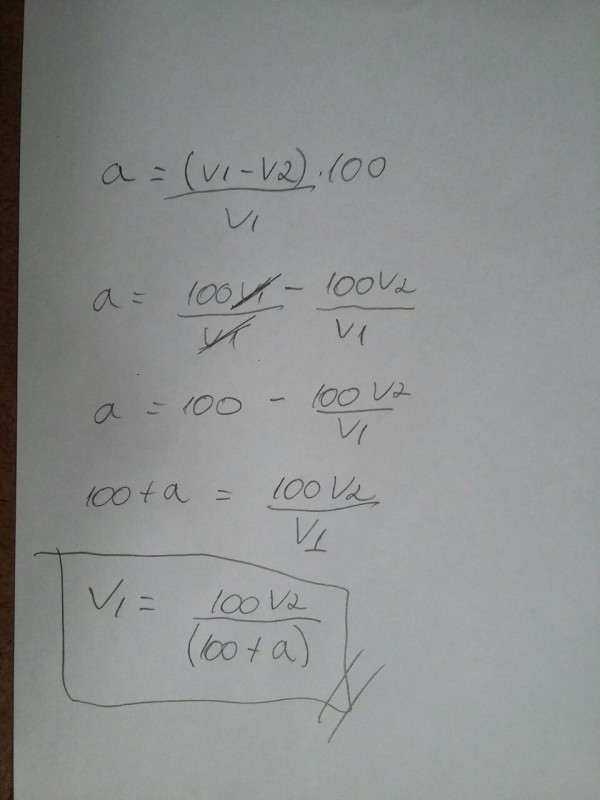 a = (V1 - V2) . 100 / V1
a = 100V1 / V1 - 100V2 / V1
a = 100 - 100V2 / V1
100 + a = 100V2 / V1
V1 = 100V2 / (100 + a)